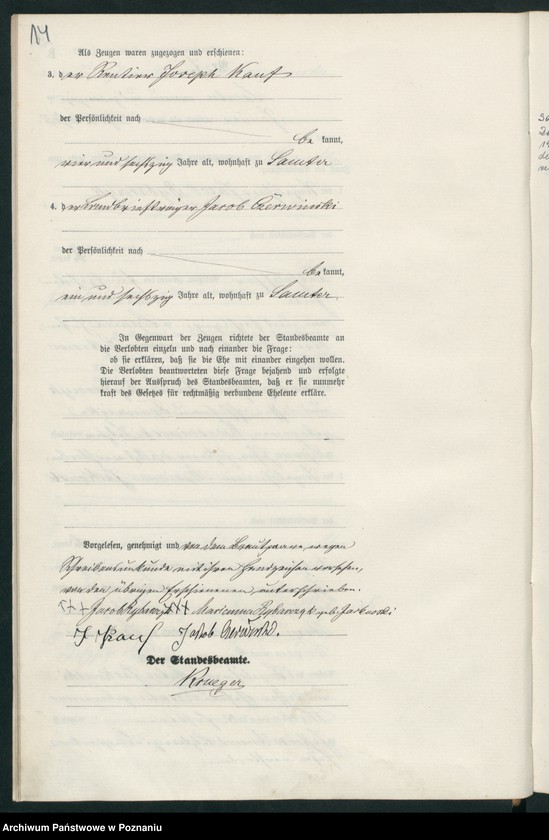 14
Als Zeugen waren zugezogen und erschienen:
3. der Rentier Joseph Kauf
der Persönlichkeit nach
be kannt,
vier und sechszig Jahre alt, wohnhaft zu Samter
4. der Landbriefträger Jacob Czerwinski
der Persönlichkeit nach
be kannt,
ein und sechszig Jahre alt, wohnhaft zu Samter
In Gegenwart der Zeugen richtete der Standesbeamte an
die Verlobten einzeln und nach einander die Frage:
ob sie erklären, daß sie die Ehe mit einander eingehen wollen.
Die Verlobten beantworteten diese Frage bejahend und erfolgte
hierauf der Ausspruch des Standesbeamten, daß er sie nunmehr
kraft des Gesetzes für rechtmäßig verbundene Eheleute erkläre.
Vorgelesen, genehmigt und von dem Brautpaare, wegen
Schreibensunkunde mit ihren Handzeichen versehen,
von den übrigen Erschienenen unterschrieben.
+++ Jacob Rybarczyk +++ Marianna Rybarczyk geb.
J Kauf Jakob Czerwinski.
Der Standesbeamte.
Krueger
Archiwum Państwowe w Poznaniu